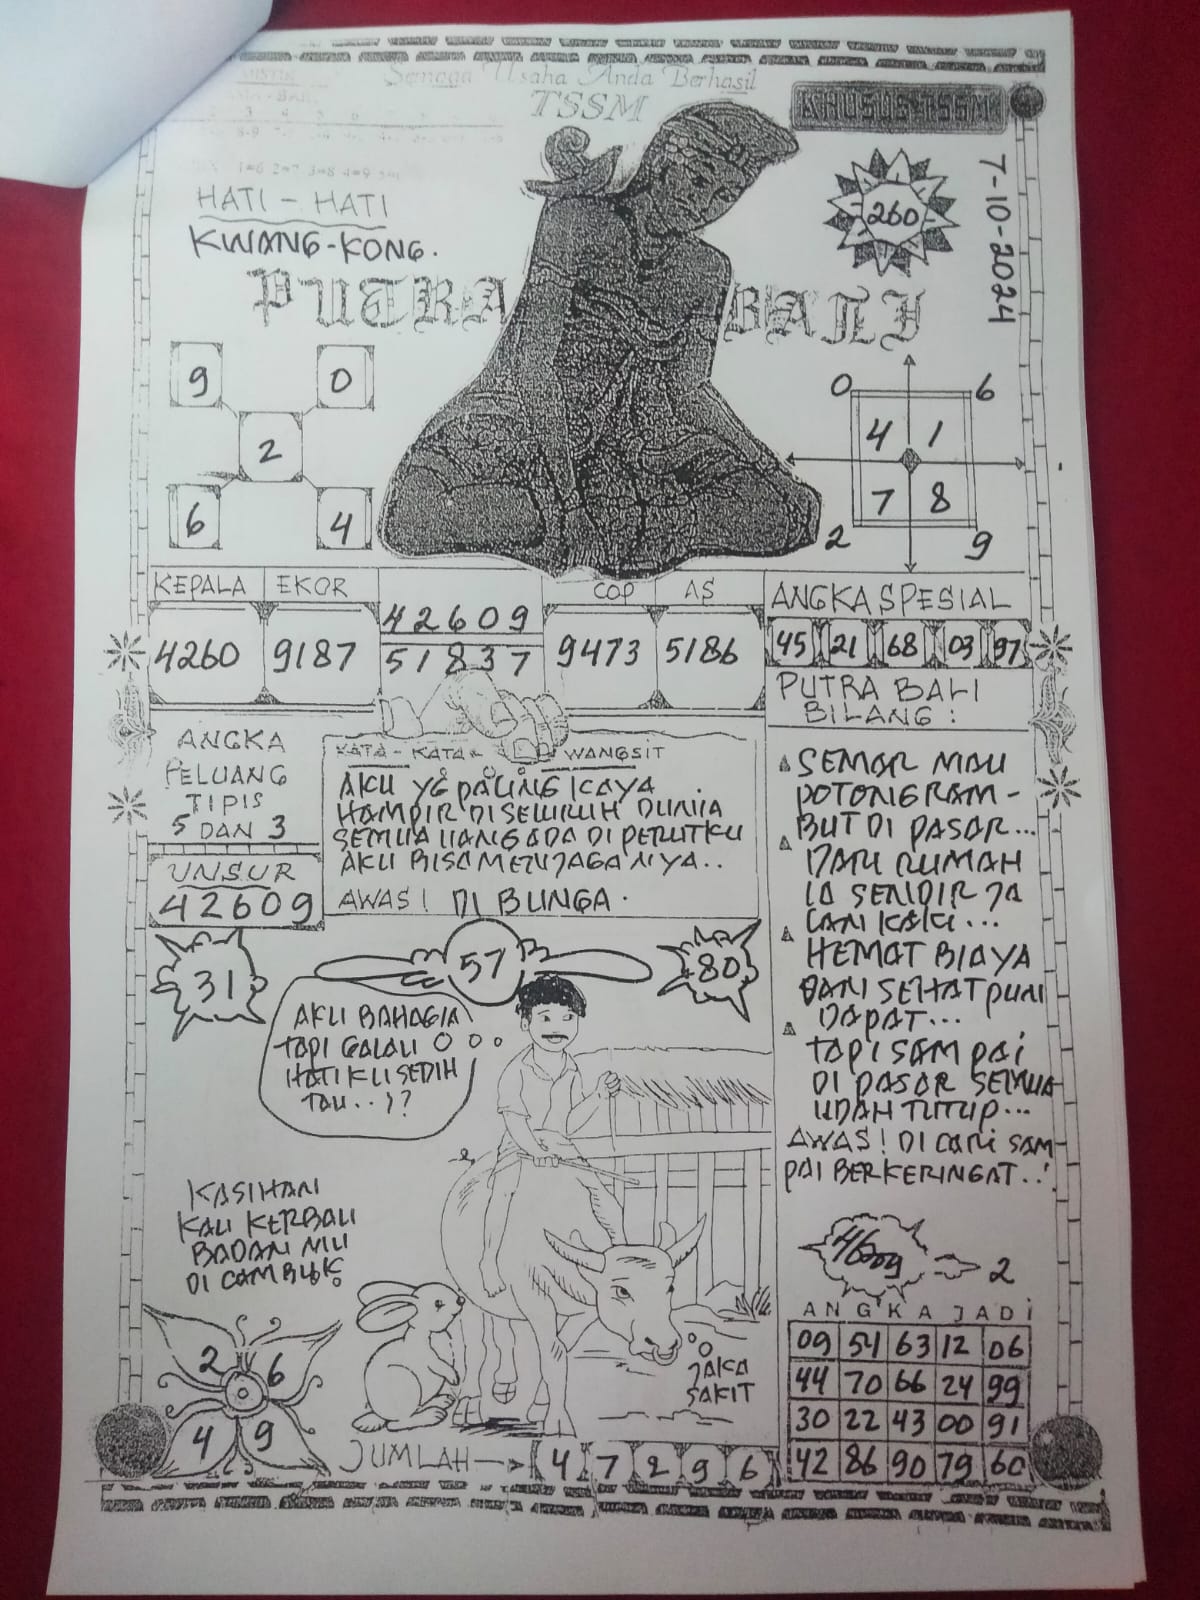 Semoga Usaha Anda Berhasil
TSSM
KHUSUS TSSM
7-10-2024
260
HATI - HATI
KWANG-KONG.
PUTRA BALI
9 0
2
6 4
0 6
4 1
7 8
2 9
KEPALA EKOR COP AS
4260 9187
42609
51837
9473 5186
ANGKA SPESIAL
45 21 68 03 97
PUTRA BALI
BILANG :
SEMAR MAU
POTONG RAM-
BUT DI PASAR...
DARI RUMAH
IA SENDIR JA
LAN KAKI...
HEMAT BIAYA
DAN SEHAT PUN
DAPAT...
TAPI SAMPAI
DI PASAR SEMUA
UDAH TUTUP...
AWAS! DI CARI SAM
PAI BERKERINGAT..!
ANGKA
PELUANG
TIPIS
5 DAN 3
UNSUR
42609
KATA - KATA - WANGSIT
AKU YG PALING KAYA
HAMPIR DI SELURUH DUNIA
SEMUA UANG ADA DI PERUTKU
AKU BISA MENJAGANYA..
AWAS! DI BUNGA.
31
57
80
AKU BAHAGIA
TAPI GALAU
HATIKU SEDIH
TAU..)?
KASIHAN
KAU KERBAU
BADAN MU
DI CAMBUK
JAKA
SAKIT
2 6
4 9
JUMLAH 4 7 2 9 6
2
ANGKA JADI
09 54 63 12 06
44 70 66 24 99
30 22 43 00 91
42 86 90 79 60